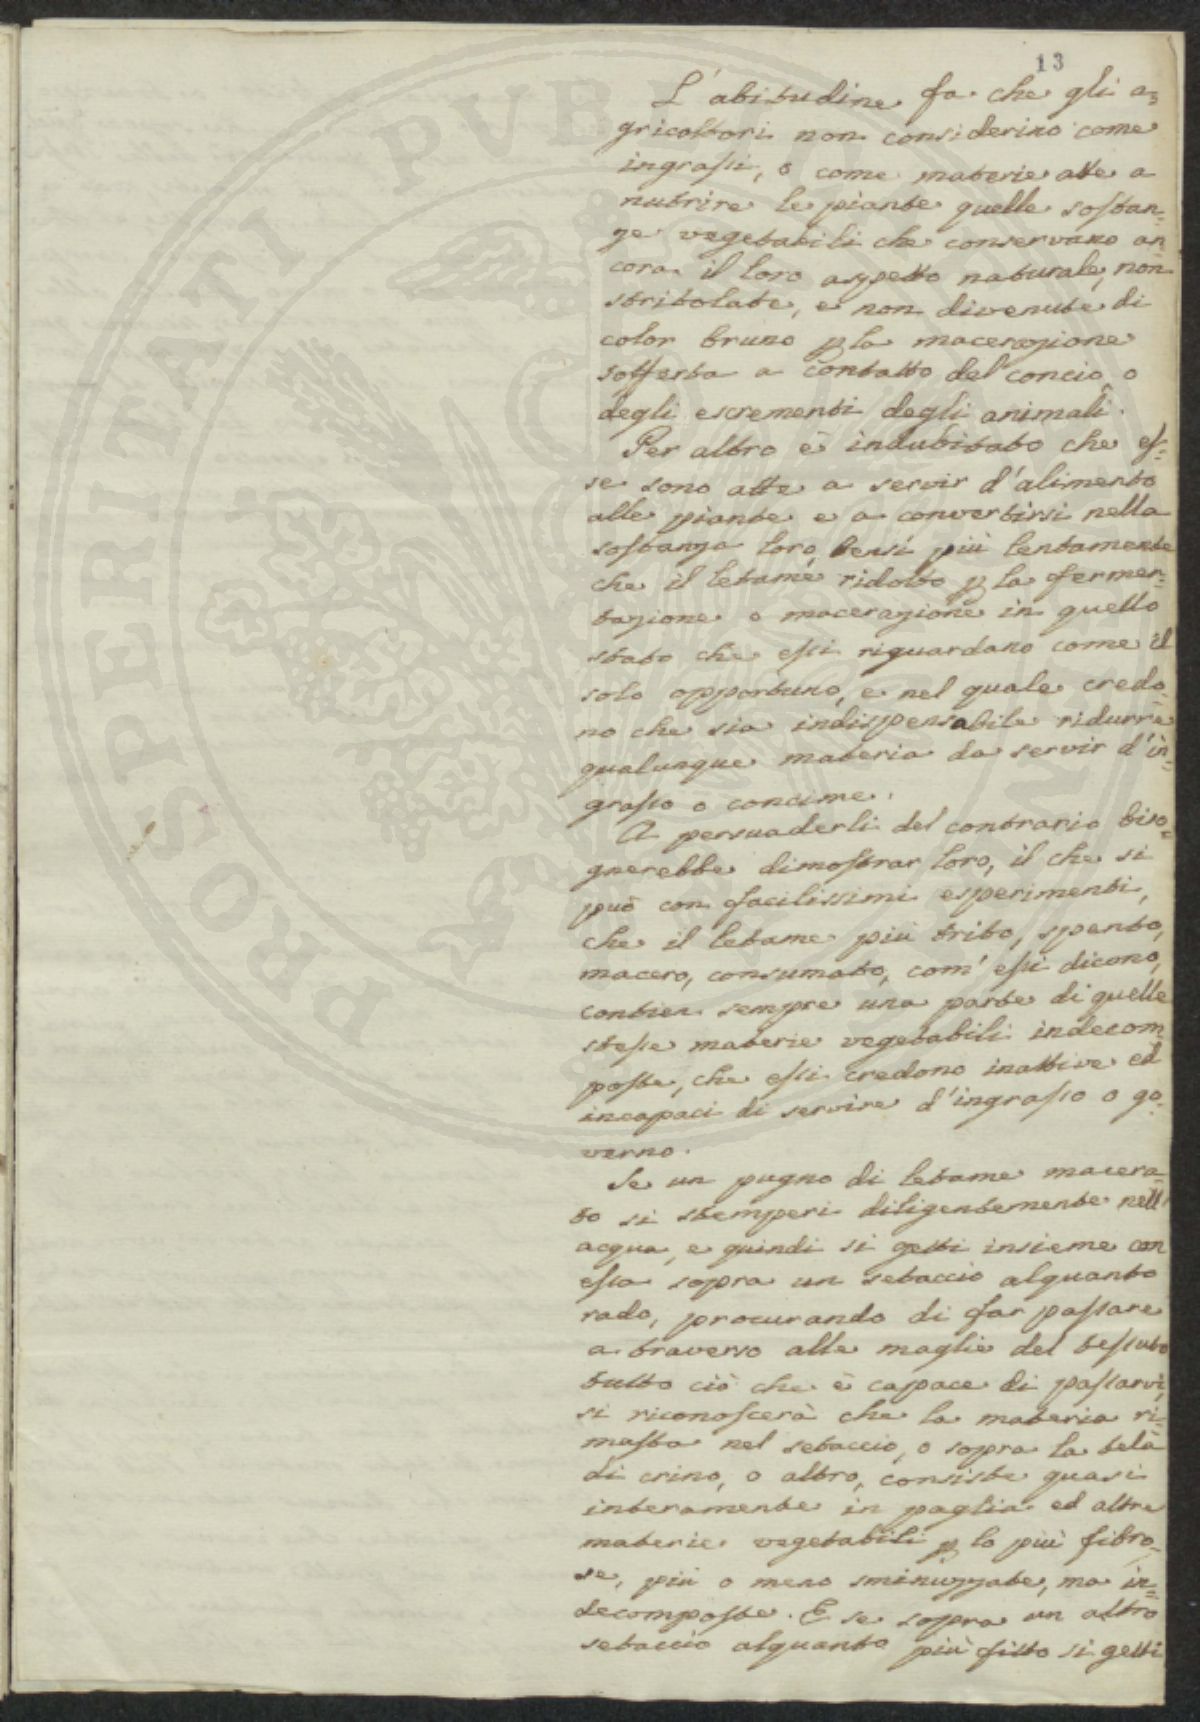 13
L'abitudine fa che gli a=
gricoltori non considerino come
ingrassi, o come materie atte a
nutrire le piante quelle sostan=
ze vegetabili che conservano an
cora il loro aspetto naturale, non
stritolate, e non divenute di
color bruno p la macerazione
sofferta a contatto del concio o
degli escrementi degli animali.
Per altro è indubitato che es=
se sono atte a servir d'alimento
alle piante e a convertirsi nella
sostanza loro, bensì più lentamente
che il letame ridotto p la fermen=
tazione o macerazione in quello
stato che essi riguardano come il
solo opportuno, e nel quale credo=
no che sia indispensabile ridurre
qualunque materia da servir d'in=
grasso o concime.
A persuaderli del contrario biso=
gnerebbe dimostrar loro, il che si
può con facilissimi esperimenti,
che il letame più trito, spento,
macero, consumato, com' essi dicono,
contien sempre una parte di quelle
stesse materie vegetabili indecom=
poste, che essi credono inattive ed
incapaci di servire d'ingrasso o go=
verno.
Se un pugno di letame macera=
to si stemperi diligentemente nell'
acqua, e quindi si getti insieme con
essa sopra un setaccio alquanto
rado, procurando di far passare
a traverso alle maglie del tessuto
tutto ciò che è capace di passarvi,
si riconoscerà che la materia ri=
masta nel setaccio, o sopra la tela
di crino, o altro, consiste quasi
interamente in paglia ed altre
materie vegetabili p lo più fibro=
se, più o meno sminuzzate, ma in=
decomposte. E se sopra un altro
setaccio alquanto più fitto si getti
PROSPERITATI PUBLICAE